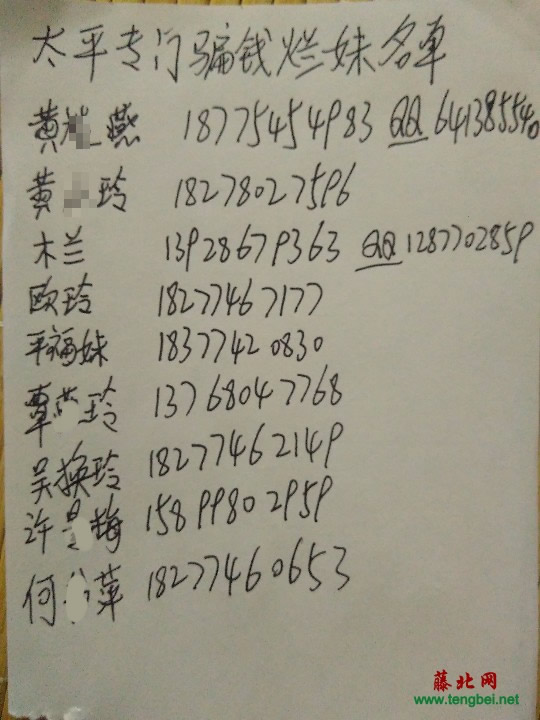 太平专门骗钱烂妹名单
黄燕 18775454983 QQ 641385540
黄玲 18278027596
木兰 13928679363 QQ 1287702859
欧玲 18277467177
平福妹 18377420830
覃玲 13768047768
吴换玲 18277462149
许梅 15899802959
何萍 18277460653
藤北网
www.tengbei.net